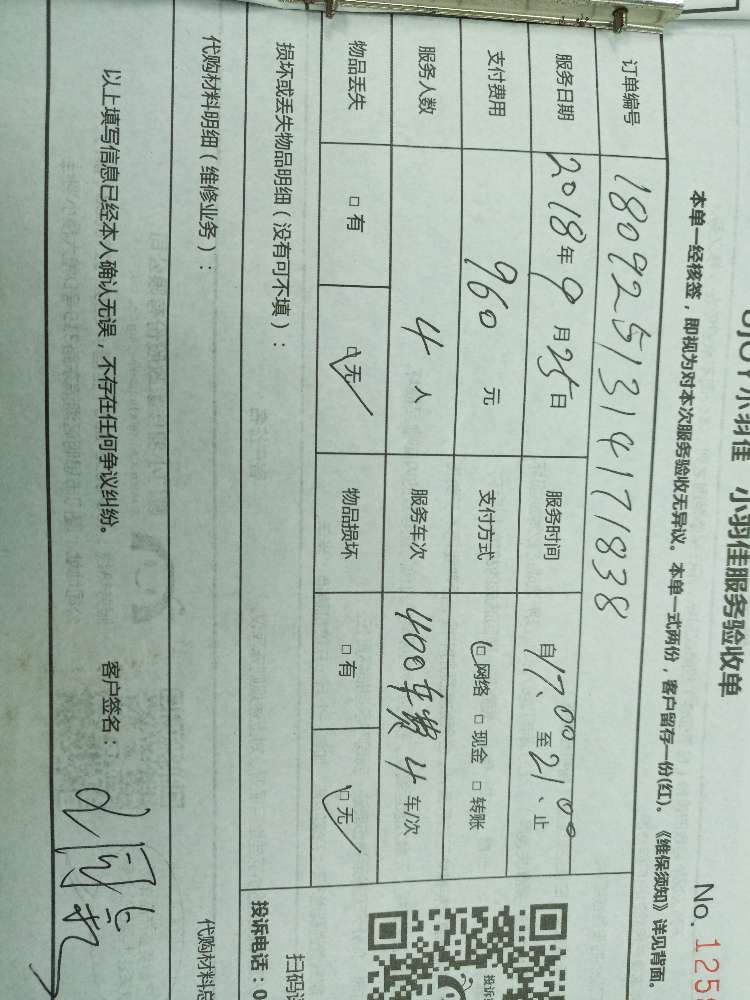 小羽佳 小羽佳服务验收单
No. 125
本单一经核签，即视为对本次服务验收无异议。本单一式两份，客户留存一份(红)。《维保须知》详见背面。
订单编号 1809251314171838
服务日期 2018年9月25日 服务时间 自17:00至21:00止
支付费用 960元 支付方式 □网络 □现金 □转账
服务人数 4人 服务车次 400车费4车/次
物品丢失 □有 □无 物品损坏 □有 □无
损坏或丢失物品明细（没有可不填）：
代购材料明细（维修业务）：
代购材料总
以上填写信息已经本人确认无误，不存在任何争议纠纷。 客户签名：
投诉电话：0
扫码
投诉